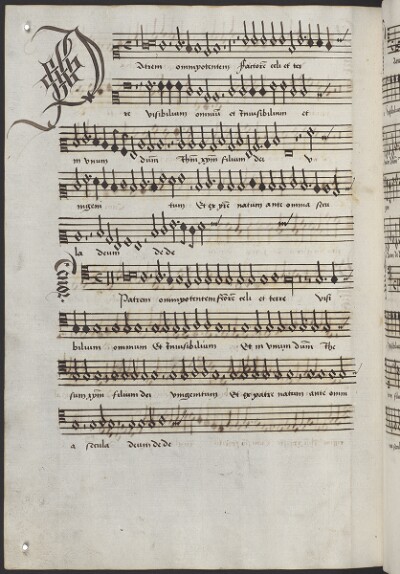 Patrem omnipotentem factorē celi et ter
re visibilium omniū et īnvisibilium et
in vnum dūm Jhm̄ xpm̄ filium dei v
nigeni tum Et ex pr̄e natum ante omnia secu
la deum de de
Tenor
Patrem omnipotentem fctōrē celi et terre visi
bilium omnium Et īnvisibilium Et in vnum dūm Jhe
sum xpm̄ filium dei vnigenitum Et ex patre natum ante omni
a secula deum de de